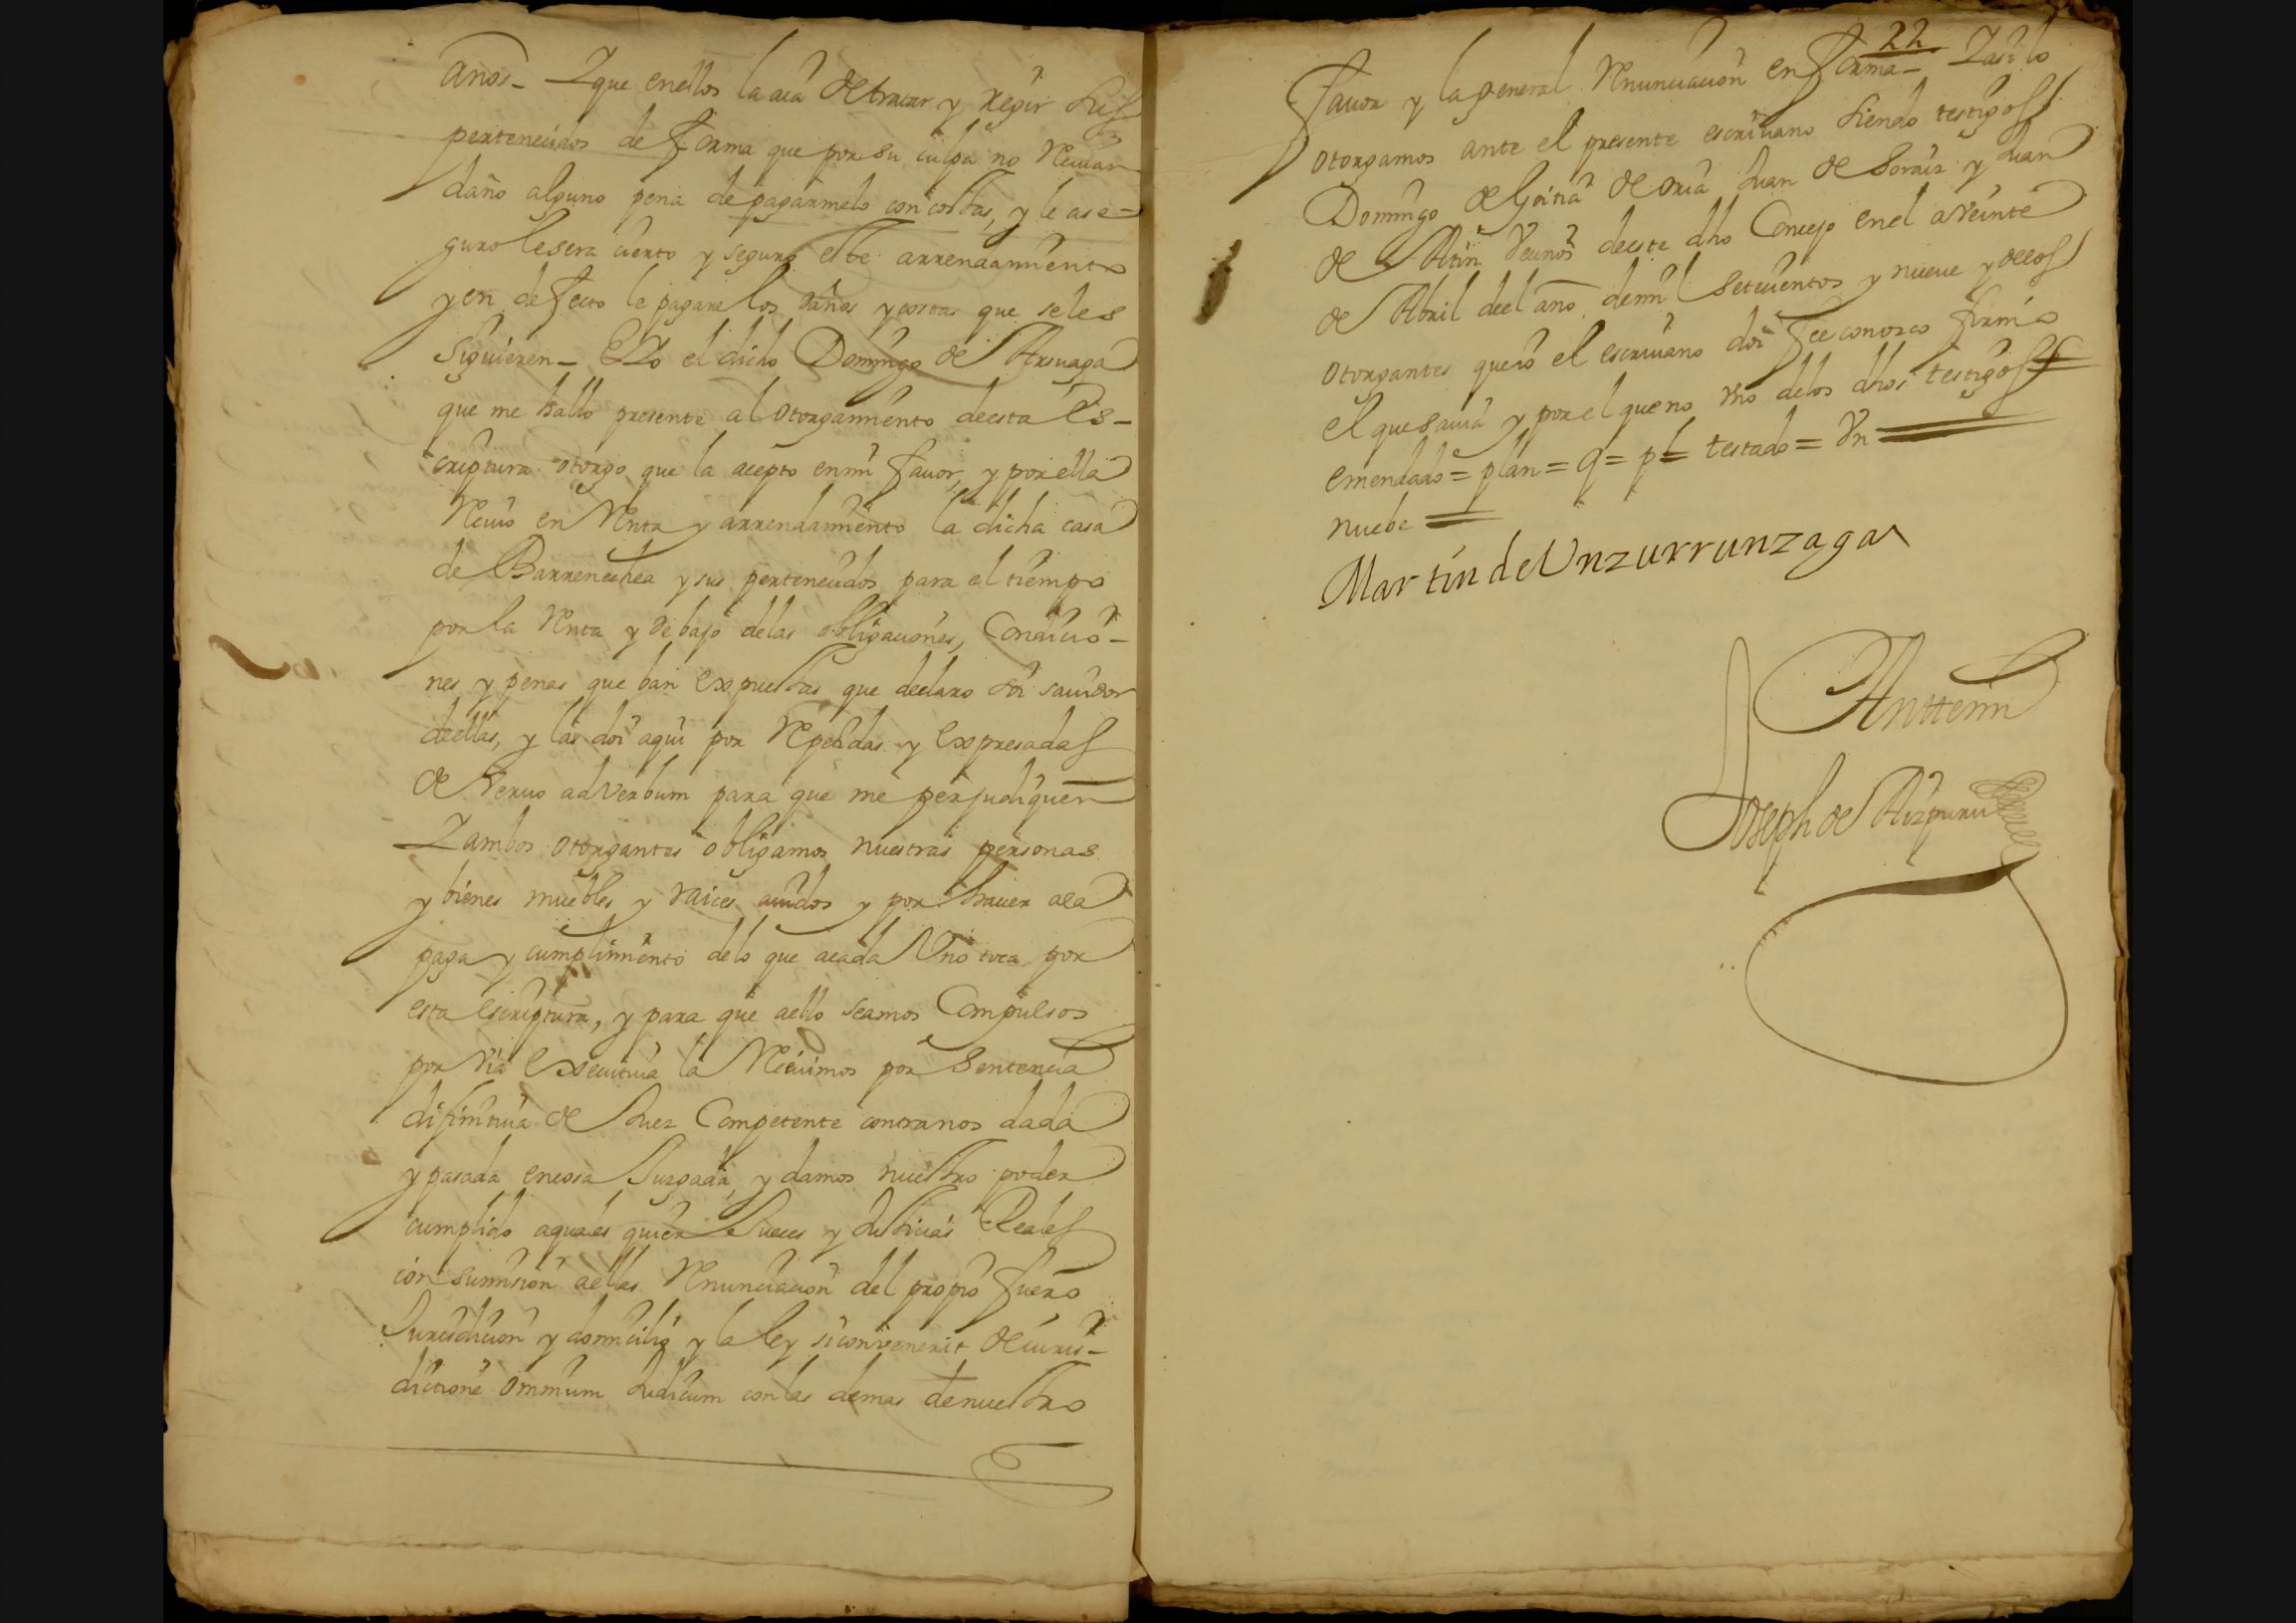 años – Y que enellos la aia de tratar y regir sus
pertenecidos de forma que por su culpa no reciuan
daño alguno pena de pagarmelo con costas, y le ase=
guro le sera cierto y seguro este arrendamiento
y en defecto le pagare los daños y costas que se les
siguieren – E Yo el dicho Domingo de Arsuaga
que me hallo presente al otorgamiento de esta es–
criptura otorgo que la acepto en mi fauor, y por ella
reciuo en renta y arrendamiento la dicha casa
de Barrenechea y sus pertenecidos para el tiempo
por la renta y debajo delas obligaciones, Condicio–
nes y penas que ban expuestas que declaro soi sauidor
de ellas, y las doi aqui por repetidas y expresadas
de veruo adverbum para que me perjudiquen
Y ambos otorgantes obligamos nuestras personas
y bienes muebles y raices auidos y por hauer ala
paga y cumplimiento delo que acada Uno toca por
esta escriptura, y para que aello seamos Compulsos
por via executiua la reciuimos por Sentencia
difinitiua de Juez Competente contranos dada
y pasada encosa Juzgada, y damos nuestro poder
cumplido aquales quier Jueces y Justicias Reales
con sumision aellas renunciacion del propio fuero
Jurisdicion y domicilio y la ley siconvenerit de iuris–
dictione omnium Judicum con las demas de nuestro
22
fauor y la general renunciacion en forma – Y asi lo
otorgamos ante el presente escriuano siendo testigos
Domingo de Goitia de oria Juan de Soraiz y Juan
de Atin vecinos de este dho Concejo en el a veinte
de Abril de el año de mil setecientos y nueue y de los
otorgantes que io el escriuano doi fee conozco firmo
el que sauia y por el que no vno delos dhos testigos
emendado = plan = q = p = testado = vn
nuebe =
Martin de Unzurrunzaga
Antte mi
Joseph de Aizpuru